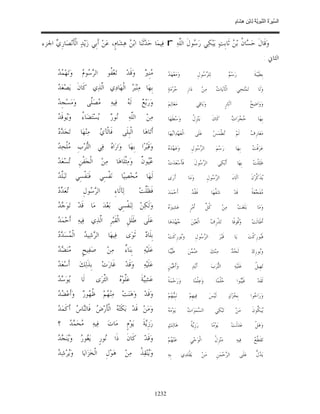 السِّيرَةُ النَّبَوِيَّةُ لِابْنِ هِشَام
وَقَالَ حَسَّانُ بْنُ ثَابِتٍ يَبْكِي رَسُولَ اللَّهِ r فِيمَا حَدَّثَنَا ابْنُ هِشَامٍ، عَنْ أَبِي زَيْدٍ الْأَنْصَارِيِّ الجزء
الثاني
بِطَيْبَةَ رَسْمٌ لِلرَّسُولِ وَمَعْهَدٌ مُنِيرٌ وَقَدْ تَعْفُو الرُّسُومُ وَتَهْمُدُ
وَلَا تَمْتَحِي الْآيَاتُ مِنْ دَارِ حُرْمَةٍ بِهَا مِنْبَرُ الْهَادِي الَّذِي كَانَ يَصْعَدُ
وَوَاضِحُ آثَارٍ وَبَاقِي مَعَالِمٍ وَرَبْعٌ لَهُ فِيهِ مُصَلًّى وَمَسْجِدُ
بِهَا حُجُرَاتٌ كَانَ يَنْزِلُ وَسْطَهَا مِنْ اللَّهِ نُورٌ يُسْتَضَاءُ وَيُوقَدُ
مَعَارِفُ لَمْ تُطْمَسْ عَلَى الْعَهْدِ آيُهَا أَتَاهَا الْبِلَى فَالْآيُ مِنْهَا تَجَدَّدُ
عَرَفْتُ بِهَا رَسْمَ الرَّسُولِ وَعَهْدَهُ وَقَبْرًا بِهَا وَارَاهُ فِي التُّرْبِ مُلْحِدُ
ظَلِلْتُ بِهَا أَبْكِي الرَّسُولَ فَأَسْعَدَتْ عُيُونٌ وَمِثْلَاهَا مِنْ الْجَفْنِ تُسْعَدُ
يُذَكِّرْنَ آلَاءَ الرَّسُولِ وَمَا أَرَى لَهَا مُحْصِيًا نَفْسِي فَنَفْسِي تَبَلَّدُ
مُفَجَّعَةً قَدْ شَفَّهَا فَقْدُ أَحْمَدَ فَظَلَّتْ لِآلَاءِ الرَّسُولِ تُعَدِّدُ
وَمَا بَلَغَتْ مِنْ كُلِّ أَمْرٍ عَشِيرَهُ وَلَكِنْ لِنَفْسِي بَعْدَ مَا قَدْ تَوَجَّدُ
أَطَالَتْ وُقُوفًا تَذْرِفُ الْعَيْنُ جُهْدَهَا عَلَى طَلَلِ الْقَبْرِ الَّذِي فِيهِ أَحْمَدُ
فَبُورِكْتَ يَا قَبْرَ الرَّسُولِ وَبُورِكَتْ بِلَادٌ ثَوَى فِيهَا الرَّشِيدُ الْمُسَدَّدُ
وَبُورِكَ لَحْدٌ مِنْكَ ضُمِّنَ طَيِّبًا عَلَيْهِ بِنَاءٌ مِنْ صَفِيحٍ مُنَضَّدُ
تَهِيلُ عَلَيْهِ التُّرْبَ أَيْدٍ وَأَعْيُنٌ عَلَيْهِ وَقَدْ غَارَتْ بِذَلِكَ أَسْعُدُ
لَقَدْ غَيَّبُوا حُلْمًا وَعِلْمًا وَرَحْمَةً عَشِيَّةَ عَلَّوْهُ الثَّرَى لَا يُوَسَّدُ
وَرَاحُوا بِحُزْنٍ لَيْسَ فِيهِمْ نَبِيُّهُمْ وَقَدْ وَهَنَتْ مِنْهُمْ ظُهُورٌ وَأَعْضُدُ
يُبَكُّونَ مَنْ تَبْكِي السَّمَوَاتُ يَوْمَهُ وَمَنْ قَدْ بَكَتْهُ الْأَرْضُ فَالنَّاسُ أَكْمَدُ
وَهَلْ عَدَلَتْ يَوْمًا رَزِيَّةُ هَالِكٍ رَزِيَّةَ يَوْمٍ مَاتَ فِيهِ مُحَمَّدُ ؟
تَقَطَّعَ فِيهِ مَنْزِلُ الْوَحْيِ عَنْهُمْ وَقَدْ كَانَ ذَا نُورٍ يَغُورُ وَيُنْجِدُ
يَدُلُّ عَلَى الرَّحْمَنِ مَنْ يَقْتَدِي بِهِ وَيُنْقِذُ مِنْ هَوْلِ الْخَزَايَا وَيُرْشِدُ
1232